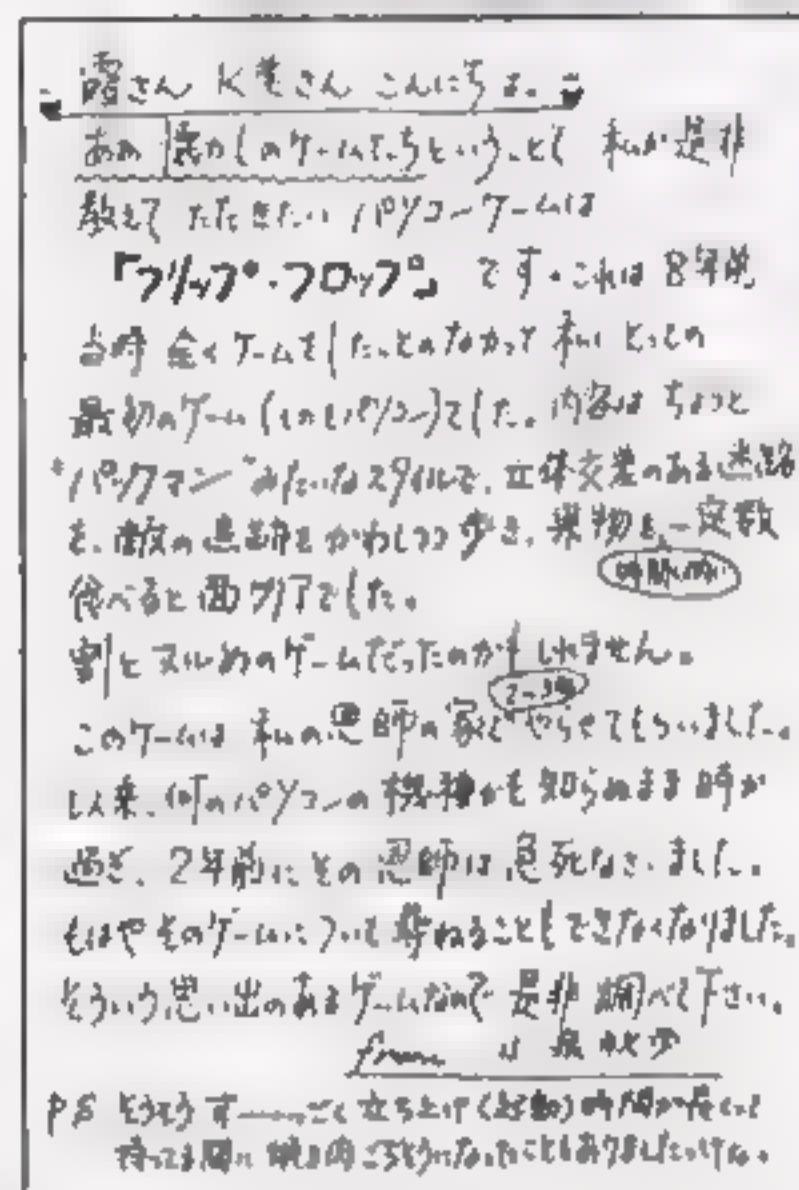 霞さん K さん こんにちは。
あの 懐かしのゲームたちということで 私が是非
教えていただきたいパソコンゲームは
『フリップ・フロップ』 です。これは8年前、
当時 全くゲームをしたことのなかった私にとっての
最初のゲーム(そのもパソコン)でした。内容は ちょっと
"パックマン"みたいなスタイルで、立体交差のある迷路
を、敵の追跡をかわしつつ歩き、果物を一定数
時間内に
食べると面クリアでした。
割とヌルめのゲームだったのかもしれません。
2〜3度
このゲームは 私の恩師の家でやらせてもらいました。
以来、何のパソコンの機種かも知らぬまま時が
過ぎ、2年前にその恩師は急死なさいました。
もはやそのゲームについて尋ねることもできなくなりました。
そういう思い出のあるゲームなので 是非 調べて下さい。
from
PS そうそう すーーっごく立ち上げ(起動)時間が長くって
待ってる間に 焼き肉ごちそうになったこともありましたっけね。